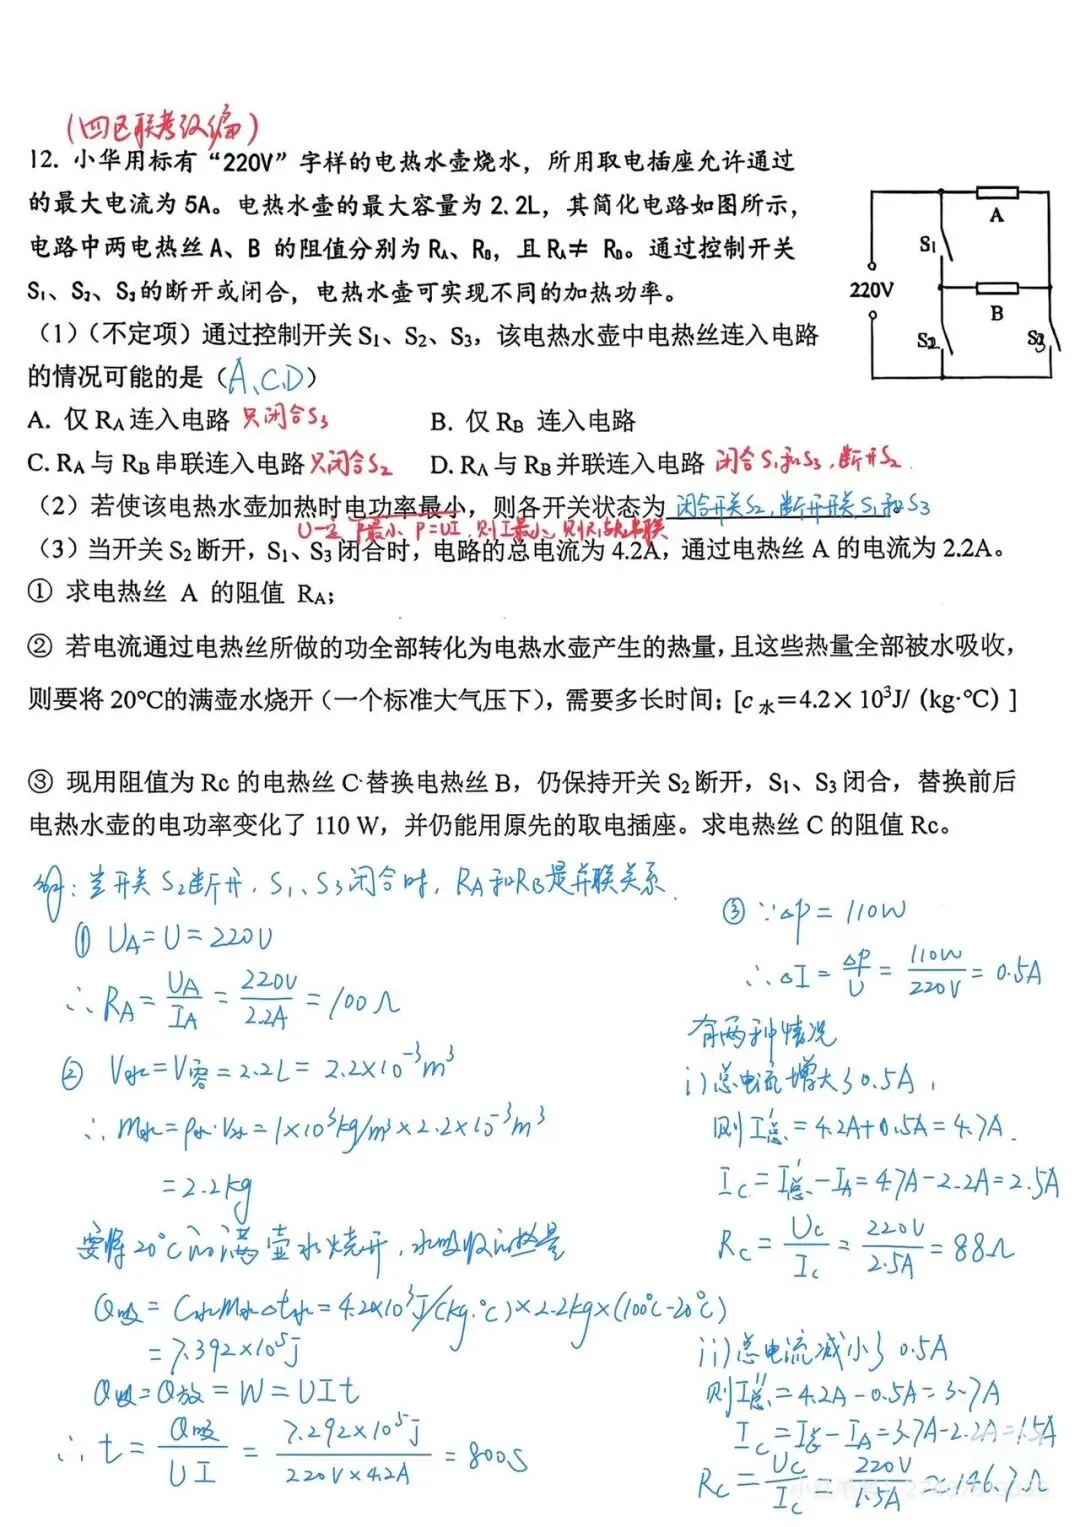 (四区联考改编)
12. 小华用标有“220V”字样的电热水壶烧水，所用取电插座允许通过
的最大电流为 5A。电热水壶的最大容量为 2.2L，其简化电路如图所示，
电路中两电热丝 A、B 的阻值分别为 RA、RB，且 RA≠ RB。通过控制开关
S1、S2、S3的断开或闭合，电热水壶可实现不同的加热功率。
A
S1
220V
B
S2
S3
（1）（不定项）通过控制开关 S1、S2、S3，该电热水壶中电热丝连入电路
的情况可能的是（A、C、D）
A. 仅 RA 连入电路 只闭合S3 B. 仅 RB 连入电路
C. RA 与 RB 串联连入电路 只闭合S2 D. RA 与 RB 并联连入电路 闭合S1和S3，断开S2.
（2）若使该电热水壶加热时电功率最小，则各开关状态为 闭合开关S2，断开开关S1和S3
U一定 P最小. P=UI. 则I最小，则 串联
（3）当开关 S2 断开，S1、S3 闭合时，电路的总电流为 4.2A，通过电热丝 A 的电流为 2.2A。
① 求电热丝 A 的阻值 RA；
② 若电流通过电热丝所做的功全部转化为电热水壶产生的热量，且这些热量全部被水吸收，
则要将 20℃的满壶水烧开（一个标准大气压下），需要多长时间；[c 水＝4.2× 10³J/（kg·℃）]
③ 现用阻值为 Rc 的电热丝 C 替换电热丝 B，仍保持开关 S2 断开，S1、S3 闭合，替换前后
电热水壶的电功率变化了 110 W，并仍能用原先的取电插座。求电热丝 C 的阻值 Rc。
解：当开关S2断开，S1、S3闭合时，RA和RB是并联关系.
① UA=U=220V
∴ RA = UA/IA = 220V/2.2A = 100Ω
② V水=V容=2.2L=2.2×10⁻³m³
∴ m水=ρ水·V水=1×10³kg/m³×2.2×10⁻³m³
=2.2kg
要将20℃的满壶水烧开，水吸收的热量
Q吸=C水m水△t水=4.2×10³J/(kg·℃)×2.2kg×(100℃-20℃)
=7.392×10⁵J
Q吸=Q放=W=UIt
∴ t = Q吸/UI = 7.292×10⁵J/220V×4.2A = 800S
③ ∵△P=110W
∴△I = △P/U = 110W/220V = 0.5A
有两种情况
i)总电流增大了0.5A，
则I总'=4.2A+0.5A=4.7A.
IC=I总'-IA=4.7A-2.2A=2.5A
RC = UC/IC = 220V/2.5A = 88Ω
ii)总电流减小了0.5A
则I总''=4.2A-0.5A=3.7A
IC=I总''-IA=3.7A-2.2A=1.5A
RC = UC/IC = 220V/1.5A ≈146.7Ω